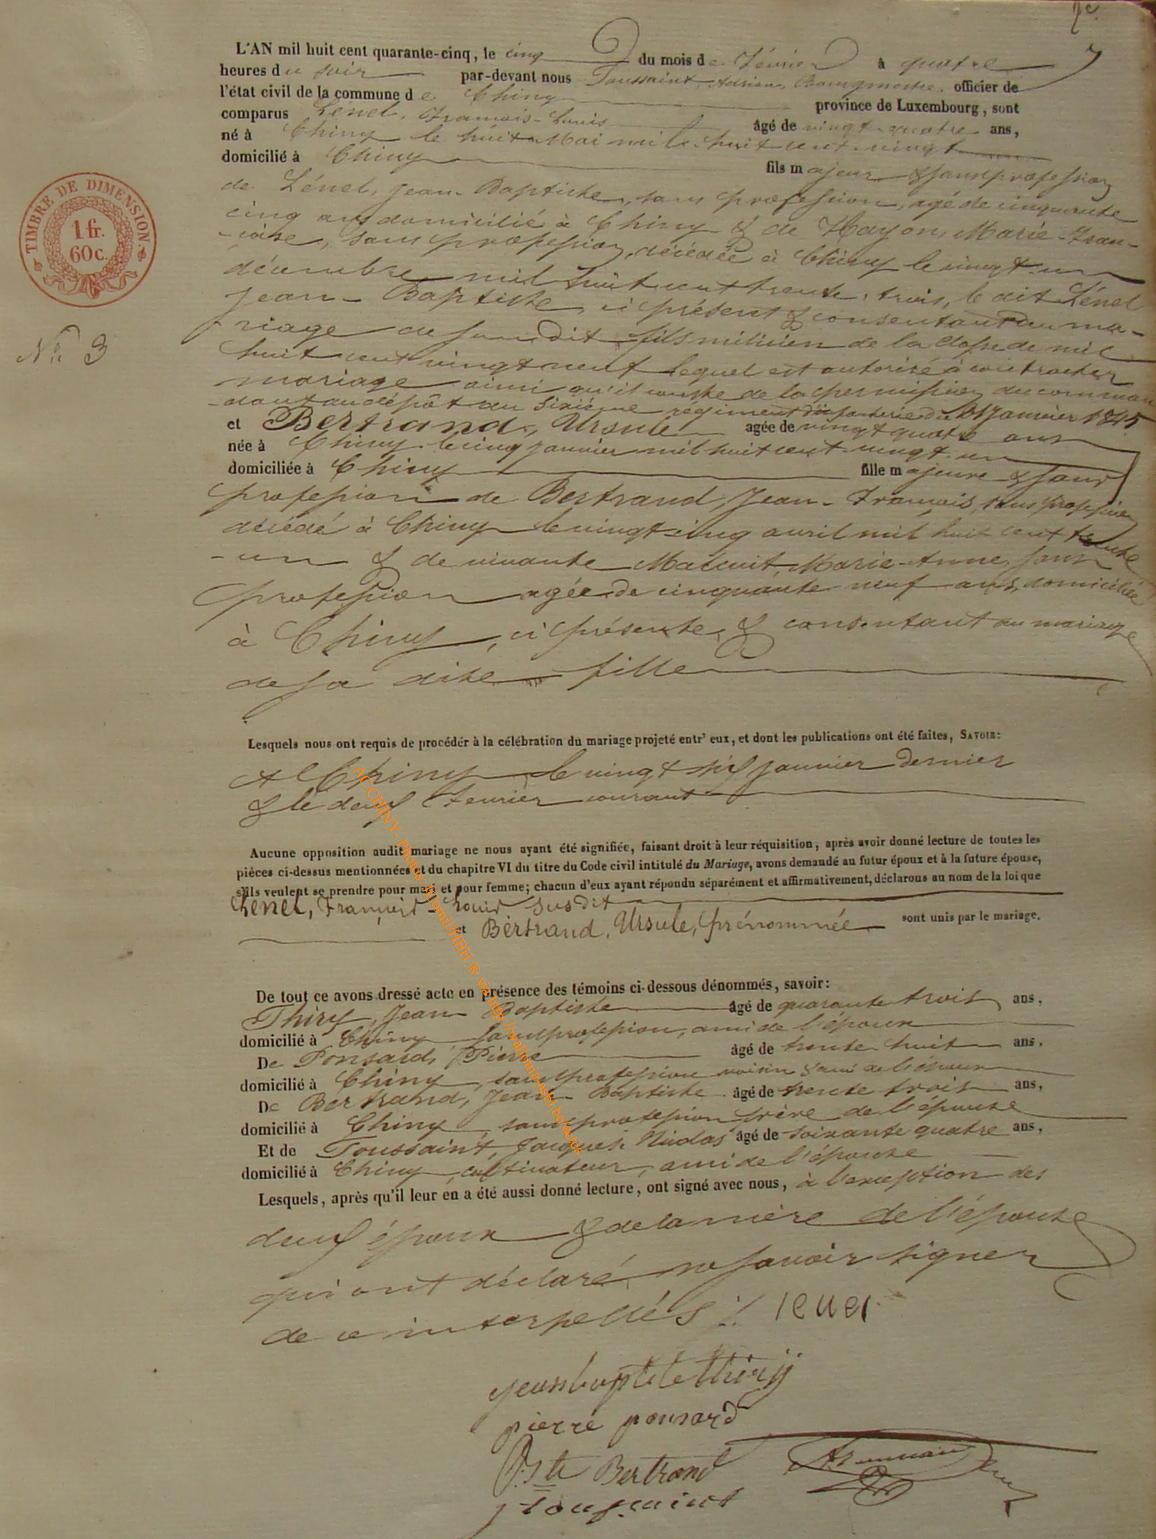 L'AN mil huit cent quarante-cinq, le cinq du mois de Février à quatre
heures du soir par-devant nous Toussaint, Adrien, Bourgmestre, officier de
l'état civil de la commune de Chiny province de Luxembourg, sont
comparus Lénel, François-Louis âgé de vingt-quatre ans,
né à Chiny le huit Mai mil huit cent vingt
domicilié à Chiny fils majeur & sans profession
de Lénel, Jean-Baptiste, sans profession, agé de cinquante
cinq ans domicilié à Chiny & de Hayon, Marie-Fran-
-çoise, sans profession, décédée à Chiny le vingt un
décembre mil huit cent trente-trois, le dit Lénel
Jean-Baptiste, ci présent & consentant au ma-
riage de son dit fils milicien de la classe de mil
huit cent vingt neuf lequel est autorisé à contracter
mariage ainsi qu'il conste de la permission du comman-
-dant au dépôt du sixième regiment d'infanterie du janvier 1845
et Bertrand, Ursule agée de vingt quatre ans
née à Chiny le cinq janvier mil huit cent vingt un
domiciliée à Chiny fille majeure & sans
profession de Bertrand, Jean-François, sans profession
décédé à Chiny le vingt-cinq avril mil huit cent trente
-un & de vivante Marie-Anne, sans
profession agée de cinquante neuf ans, domiciliée
à Chiny, ci présente & consentant au mariage
de sa dite fille
Lesquels nous ont requis de procédér à la célébration du mariage projeté entr' eux, et dont les publications ont été faites, SAVOIR:
A Chiny le vingt six janvier dernier
& le deux Février courant
Aucune opposition audit mariage ne nous ayant été signifiée, faisant droit à leur réquisition, après avoir donné lecture de toutes les
pièces ci-dessus mentionnées et du chapitre VI du titre du Code civil intitulé du Mariage, avons demandé au futur époux et à la future épouse,
s'ils veulent se prendre pour mari et pour femme; chacun d'eux ayant répondu séparément et affirmativement, déclarons au nom de la loi que
Lénel, François-Louis susdit
et Bertrand, Ursule, prénommée sont unis par le mariage.
De tout ce avons dressé acte en présence des témoins ci-dessous dénommés, savoir:
Thiry, Jean-Baptiste âgé de quarante trois ans,
domicilié à Chiny sans profession, ami de l'époux
De Ponsard, Pierre âgé de trente huit ans,
domicilié à Chiny, sans profession voisin & ami de l'époux
De Bertrand, Jean-Baptiste âgé de trente trois ans,
domicilié à Chiny, sans profession frère de l'épouse
Et de Toussaint, Jacques-Nicolas âgé de soixante quatre ans,
domicilié à Chiny, cultivateur, ami de l'épouse
Lesquels, après qu'il leur en a été aussi donné lecture, ont signé avec nous, à l'exception des
deux époux & de la mère de l'épouse
qui ont déclaré ne savoir signer
de ce interpellés ./. lenel
jeanbaptiste thiry
pierre ponsard
Bte Bertrand
j toussaint
TIMBRE DE DIMENSION
1 fr.
60c.
No 3